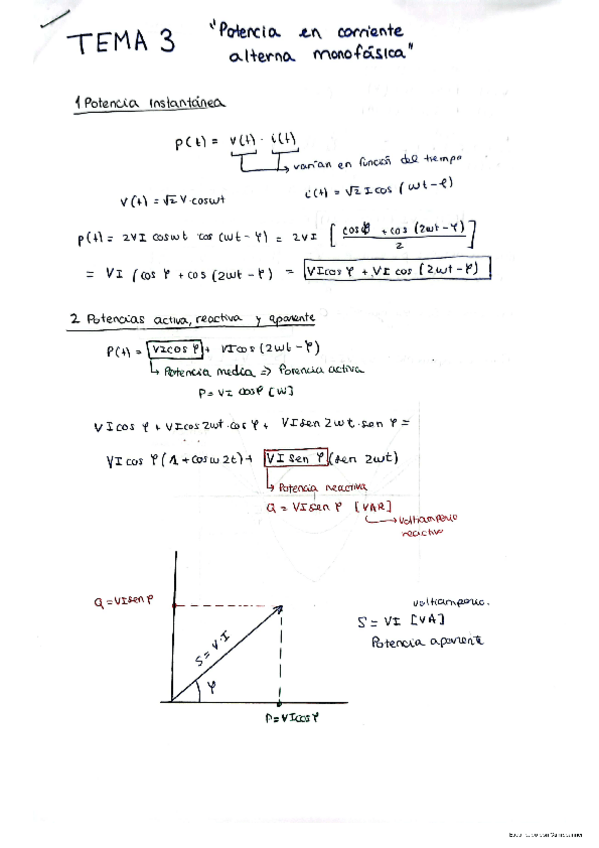 TEMA 3 "Potencia en corriente
alterna monofásica"
1 Potencia instantánea
p(t) = v(t) · i(t)
varían en función del tiempo
v(t) = √2 V · cos wt
i(t) = √2 I cos (wt - φ)
p(t) = 2VI cos wt cos (wt - φ) = 2VI [ (cos φ + cos (2wt - φ)) / 2 ]
= VI (cos φ + cos (2wt - φ) = VI cos φ + VI cos (2wt - φ)
2 Potencias activa, reactiva y aparente
P(t) = VI cos φ + VI cos (2wt - φ)
Potencia media => Potencia activa
P = VI cos φ [W]
VI cos φ + VI cos 2wt · cos φ + VI sen 2wt · sen φ =
VI cos φ (1 + cos w 2t) + VI sen φ (sen 2wt)
Potencia reactiva
Q = VI sen φ [VAR]
voltiamperio
reactivo
Q = VI sen φ
S = V · I
φ
P = VI cos φ
voltiamperio.
S = VI [VA]
Potencia aparente